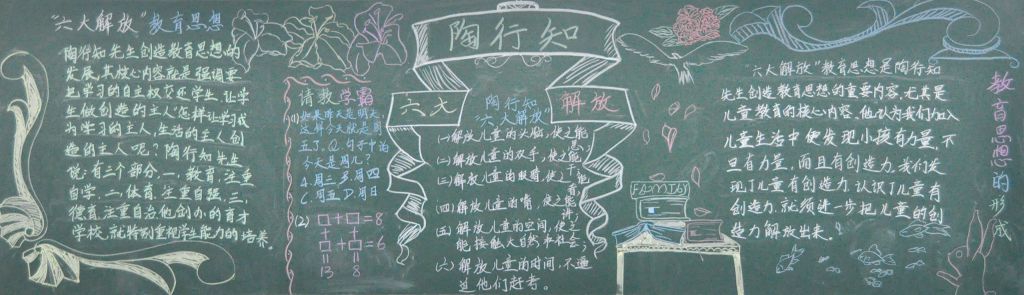 “六大解放”教育思想
陶行知先生创造教育思想的
发展,其核心内容就是强调要
把学习的自主权交还学生,让学
生做创造的主人怎样让学成
为学习的主人,生活的主人创
造的主人呢?陶行知先生
说:有三个部分,一,教育,注重
自学,二,体育,注重自强,三,
德育,注重自治他创办的育才
学校,就特别重视学生能力的培养。
请教学霸
(1)如果昨天是明天
这样今天就是周
五了。Q:句子中的
今天是周几?
A.周三 B.周四
C.周五 D.周日
(2)
□+□=8
+ +
□+□=6
= =
13 8
陶行知
六大
解放
陶行知
“六大解放”
(一)解放儿童的头脑,使之能
(二)解放儿童的双手,使之能
(三)解放儿童的眼睛,使之能
(四)解放儿童的嘴,使之能
(五)解放儿童的空间,使之
能接触大自然和社会;
(六)解放儿童的时间,不逼
迫他们赶考。
“六大解放”教育思想是陶行知
先生创造教育思想的重要内容,尤其是
儿童教育的核心内容,他认为我们加入
儿童生活中便发现小孩有力量,不
但有力量,而且有创造力,我们发
现了儿童有创造力,认识了儿童有
创造力,就须进一步把儿童的创
造力解放出来。
教育思想的形成